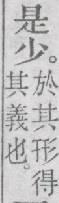 是少。
於其形得
其義也。